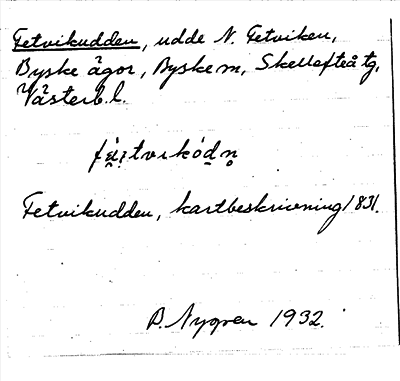 Fetvikudden, udde N. Fetviken,
Byske ägor, Byske m, Skellefteå tg,
Västerb. l.
Fetvikudden, kartbeskrivning 1831.
B. Nygren 1932.